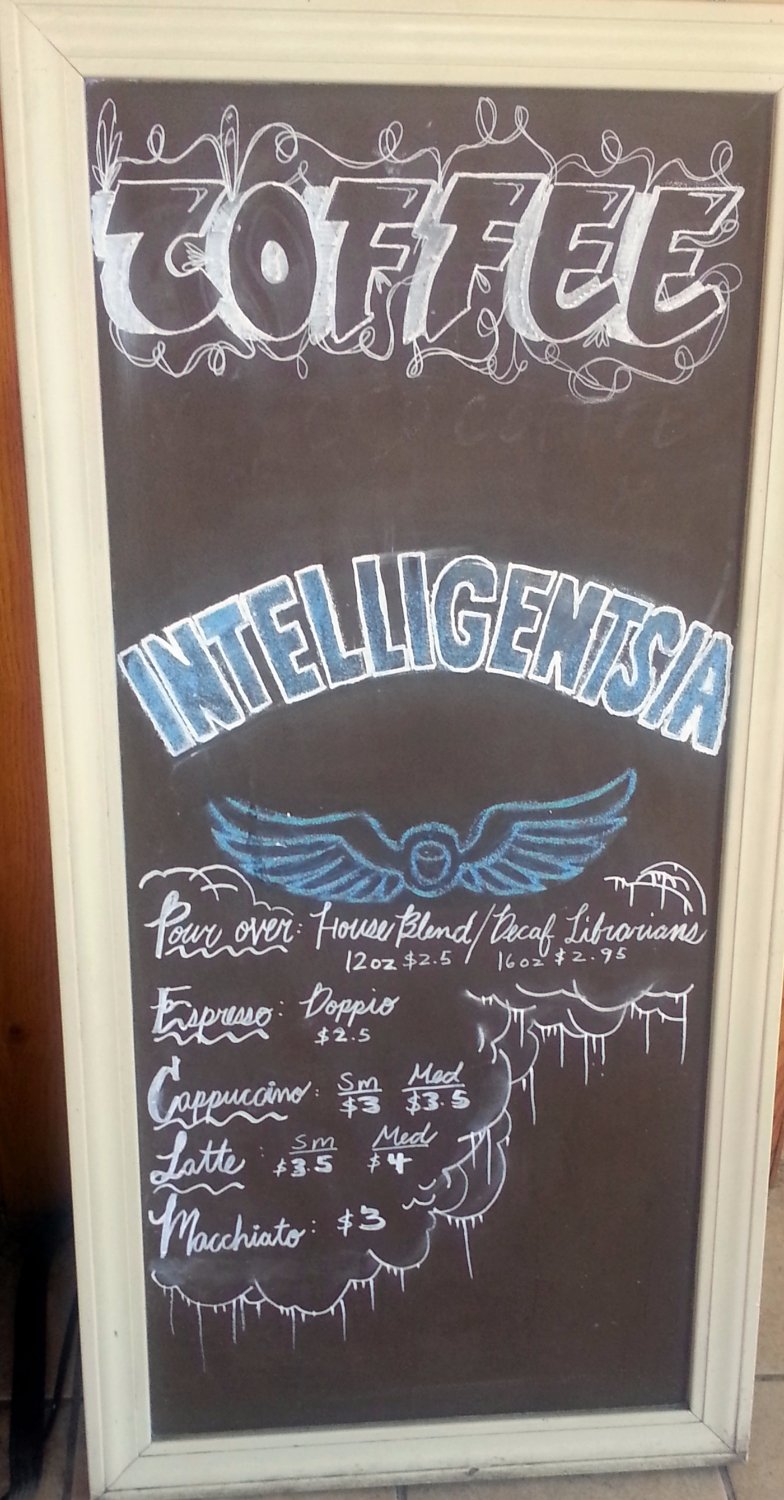 COFFEE
INTELLIGENTSIA
Pour over: House Blend/Decaf Librarians
12oz $2.5 16oz $2.95
Espresso: Doppio
$2.5
Cappuccino: Sm Med
$3 $3.5
Latte: Sm Med
$3.5 $4
Macchiato: $3